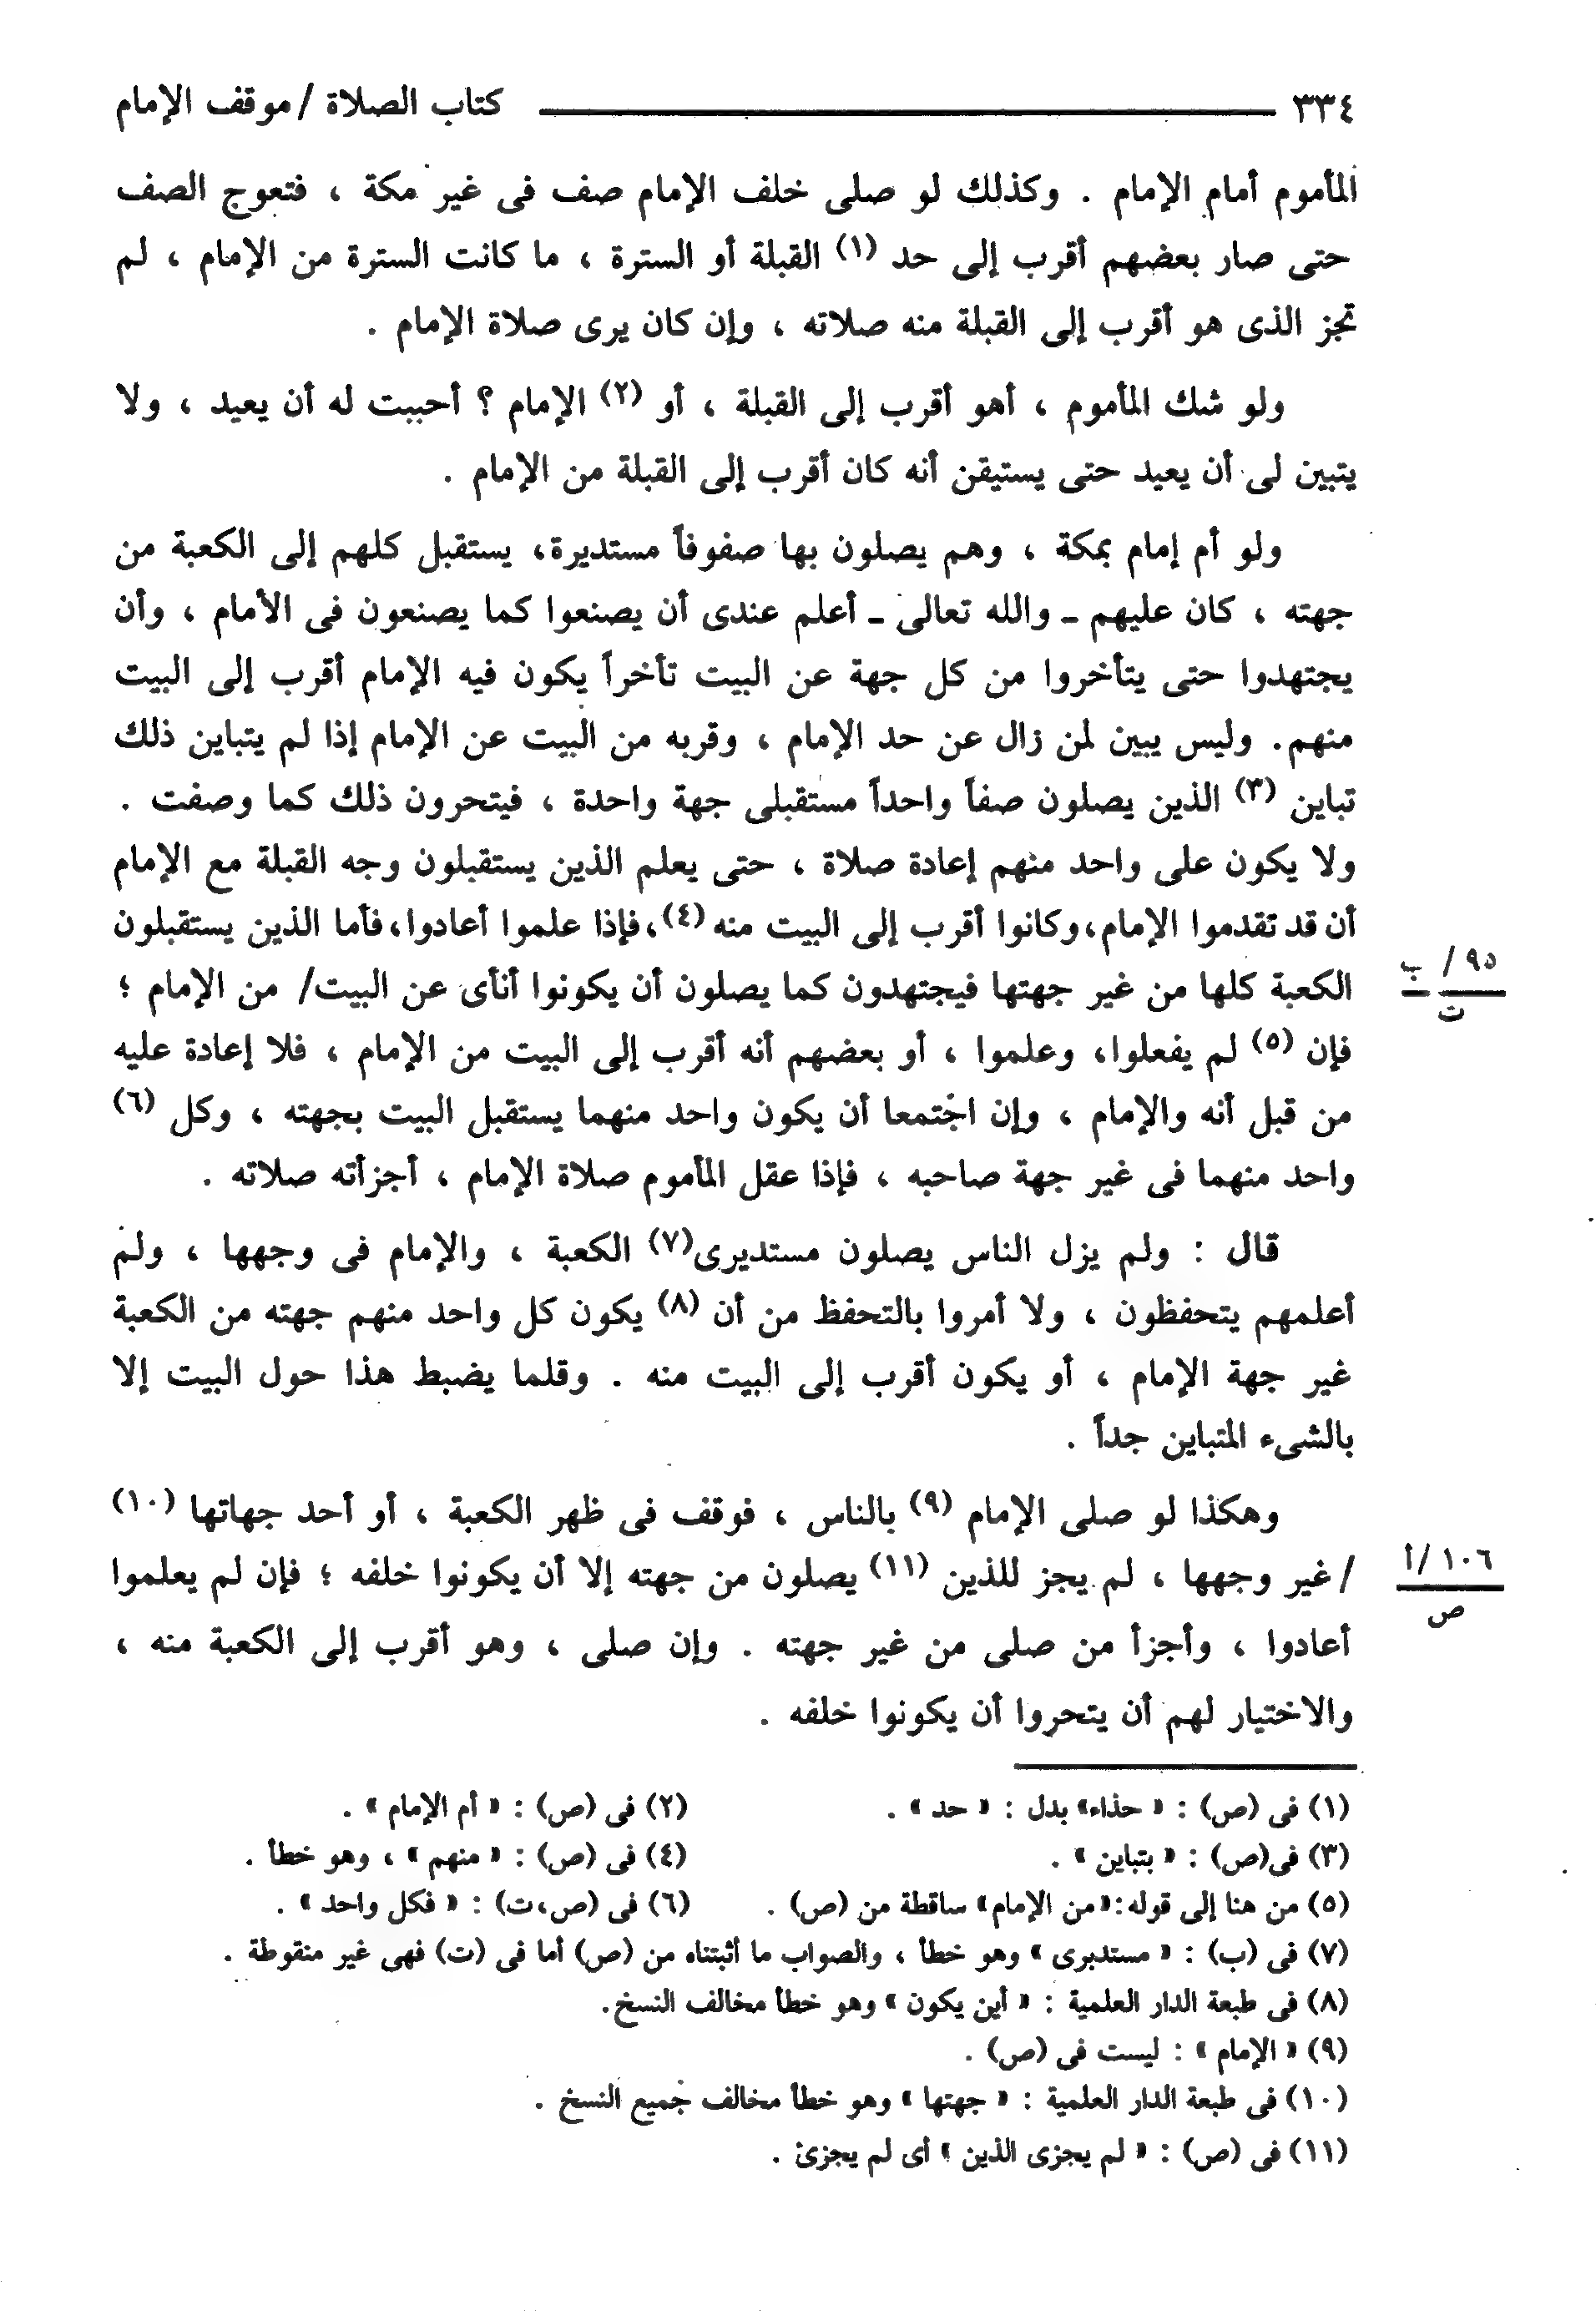 ٣٣٤ كتاب الصلاة / موقف الإمام
المأموم أمام الإمام . وكذلك لو صلى خلف الإمام صف فى غير مكة ، فتعوج الصف
حتى صار بعضهم أقرب إلى حد (١) القبلة أو السترة ، ما كانت السترة من الإمام ، لم
تجز الذى هو أقرب إلى القبلة منه صلاته ، وإن كان يرى صلاة الإمام .
ولو شك المأموم ، أهو أقرب إلى القبلة ، أو (٢) الإمام ؟ أحببت له أن يعيد ، ولا
يتبين لى أن يعيد حتى يستيقن أنه كان أقرب إلى القبلة من الإمام .
ولو أم إمام بمكة ، وهم يصلون بها صفوفاً مستديرة، يستقبل كلهم إلى الكعبة من
جهته ، كان عليهم ـ والله تعالى ـ أعلم عندى أن يصنعوا كما يصنعون فى الأمام ، وأن
يجتهدوا حتى يتأخروا من كل جهة عن البيت تأخراً يكون فيه الإمام أقرب إلى البيت
منهم. وليس يبين لمن زال عن حد الإمام ، وقربه من البيت عن الإمام إذا لم يتباين ذلك
تباين (٣) الذين يصلون صفاً واحداً مستقبلى جهة واحدة ، فيتحرون ذلك كما وصفت .
ولا يكون على واحد منهم إعادة صلاة ، حتى يعلم الذين يستقبلون وجه القبلة مع الإمام
أن قد تقدموا الإمام،وكانوا أقرب إلى البيت منه (٤)،فإذا علموا أعادوا،فأما الذين يستقبلون
الكعبة كلها من غير جهتها فيجتهدون كما يصلون أن يكونوا أنأى عن البيت/ من الإمام ؛
٩٥ / ب
ت
فإن (٥) لم يفعلوا، وعلموا ، أو بعضهم أنه أقرب إلى البيت من الإمام ، فلا إعادة عليه
من قبل أنه والإمام ، وإن اجتمعا أن يكون واحد منهما يستقبل البيت بجهته ، وكل (٦)
واحد منهما فى غير جهة صاحبه ، فإذا عقل المأموم صلاة الإمام ، أجزأته صلاته .
قال : ولم يزل الناس يصلون مستديرى(٧) الكعبة ، والإمام فى وجهها ، ولم
أعلمهم يتحفظون ، ولا أمروا بالتحفظ من أن (٨) يكون كل واحد منهم جهته من الكعبة
غير جهة الإمام ، أو يكون أقرب إلى البيت منه . وقلما يضبط هذا حول البيت إلا
بالشىء المتباين جداً .
وهكذا لو صلى الإمام (٩) بالناس ، فوقف فى ظهر الكعبة ، أو أحد جهاتها (١٠)
/ غير وجهها ، لم يجز للذين (١١) يصلون من جهته إلا أن يكونوا خلفه ؛ فإن لم يعلموا
١٠٦ /أ
ص
أعادوا ، وأجزأ من صلى من غير جهته . وإن صلى ، وهو أقرب إلى الكعبة منه ،
والاختيار لهم أن يتحروا أن يكونوا خلفه .
(١) فى (ص) : « حذاء» بدل : « حد » . (٢) فى (ص) : « أم الإمام » .
(٣) فى(ص) : « بتباين » . (٤) فى (ص) : « منهم » ، وهو خطأ .
(٥) من هنا إلى قوله:«من الإمام» ساقطة من (ص) . (٦) فى (ص،ت) : « فكل واحد » .
(٧) فى (ب) : « مستدبرى » وهو خطأ ، والصواب ما أثبتناه من (ص) أما فى (ت) فهى غير منقوطة .
(٨) فى طبعة الدار العلمية : « أين يكون » وهو خطأ مخالف النسخ.
(٩) « الإمام » : ليست فى (ص) .
(١٠) فى طبعة الدار العلمية : « جهتها » وهو خطأ مخالف جميع النسخ .
(١١) فى (ص) : « لم يجزى الذين » أى لم يجزئ .